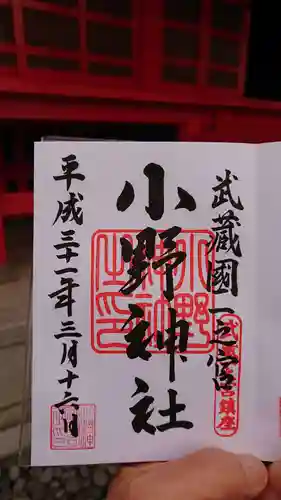 武蔵國一之宮
小野神社
平成三十一年三月十六日